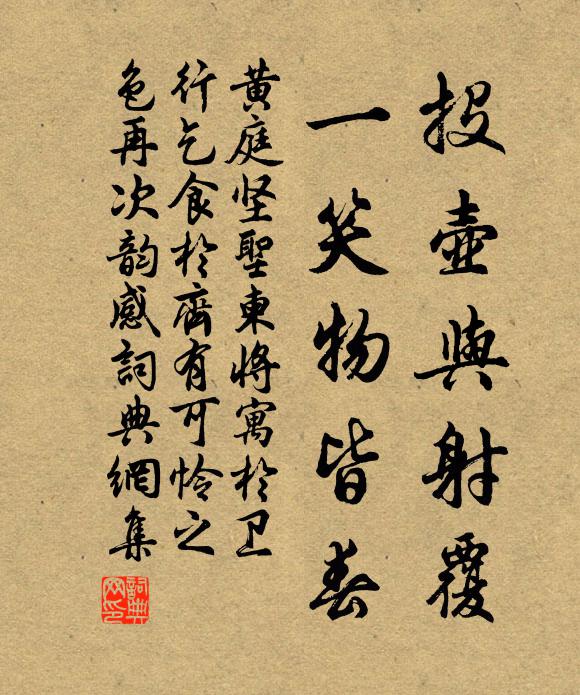 投壺與射覆
一笑物皆春
黄庭坚聖東將寓於卫
行乞食於齊有可怜之
色再次韵感詞典網集
詞典网印